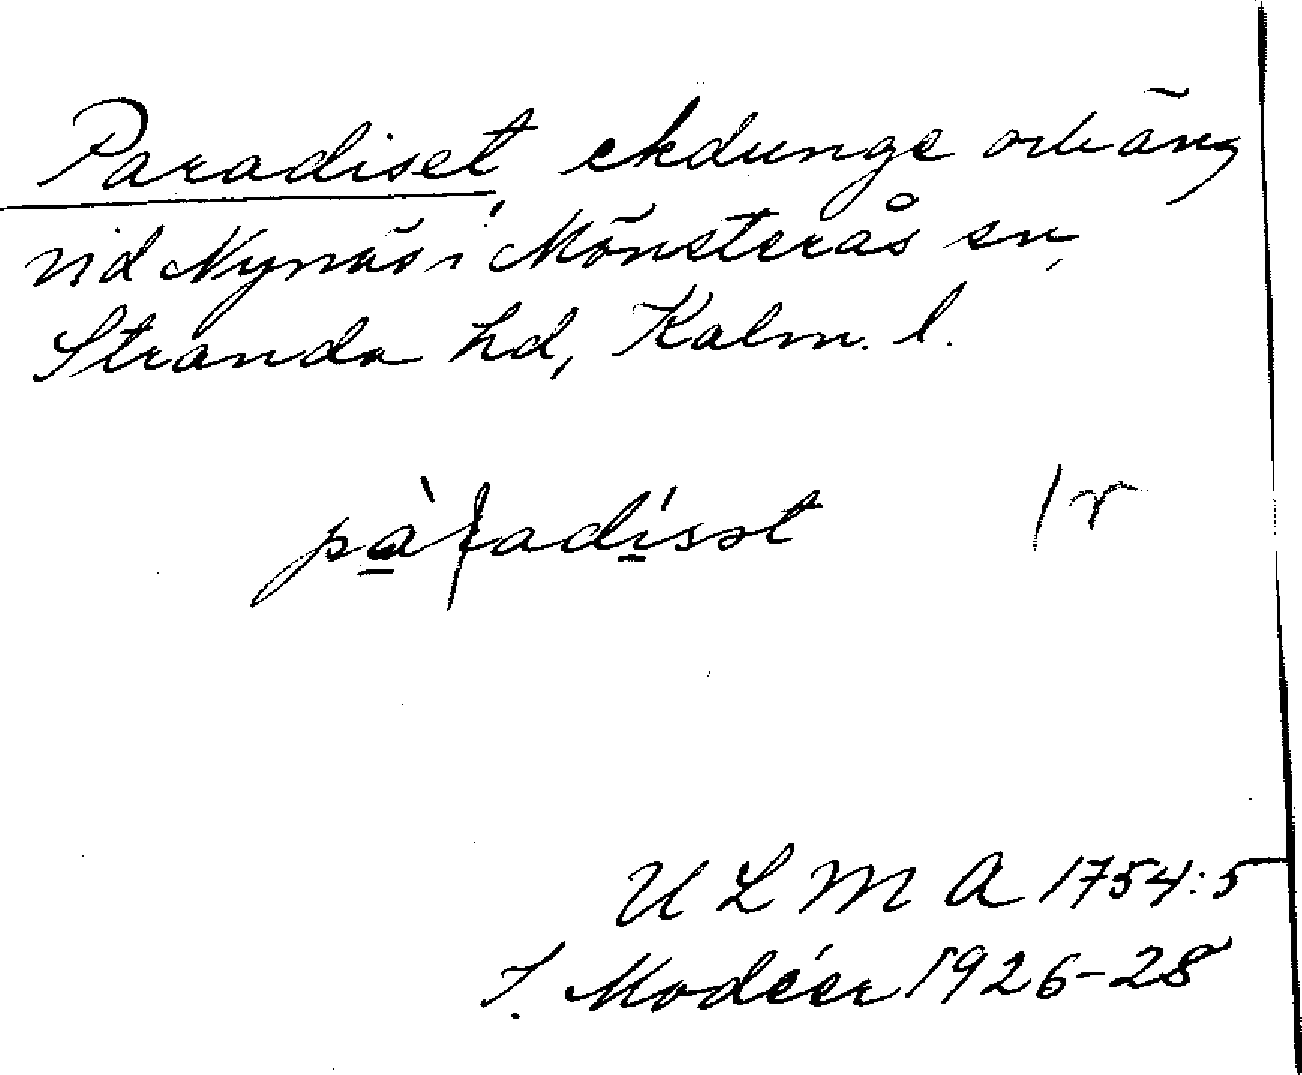 Paradiset, ekdunge och äng
vid Nynäs i Mönsterås sn,
Stranda hd, Kalm. l.
pàradísət /r
U L M A 1754:5
I. Modéer 1926-28